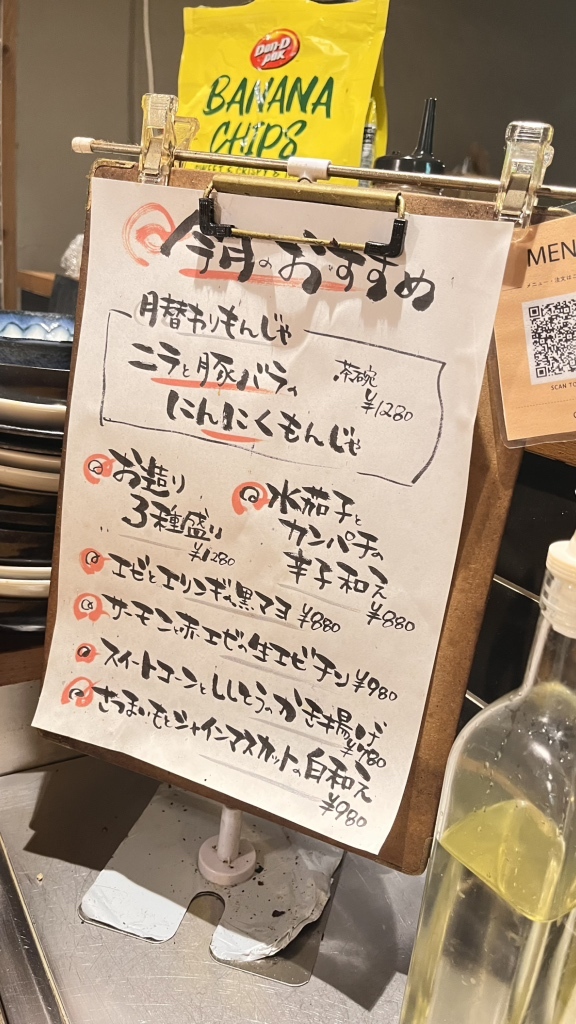 Dan-D Pak
BANANA
CHIPS
今月のおすすめ
月替わりもんじゃ
ニラと豚バラの
にんにくもんじゃ
茶碗
¥1280
お造り
3種盛り
¥1280
水茄子と
カンパチの
辛子和え
¥880
エビとエリンギの黒マヨ ¥880
サーモンと赤エビの生エビチリ ¥980
スイートコーンとししとうのかき揚げ
¥780
さつまいもとシャインマスカットの白和え
¥980
MEN
SCAN TO